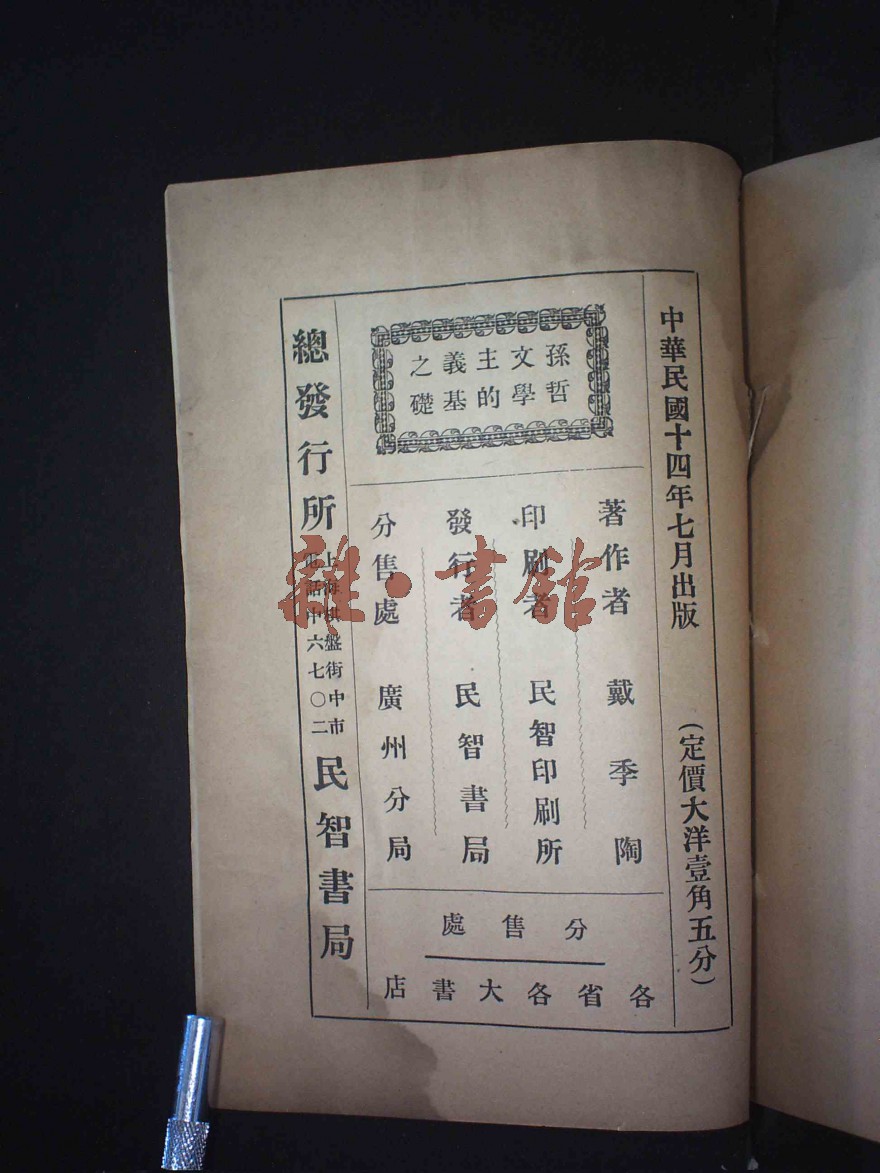 中華民國十四年七月出版
(定價大洋壹角五分)
孫文主義之
哲學的基礎
著作者 戴季陶
印刷者 民智印刷所
發行者 民智書局
分售處 廣州分局
分售處
各省各大書店
總發行所
上海棋盤街中市
電話中六七〇二
民智書局
雜·書館